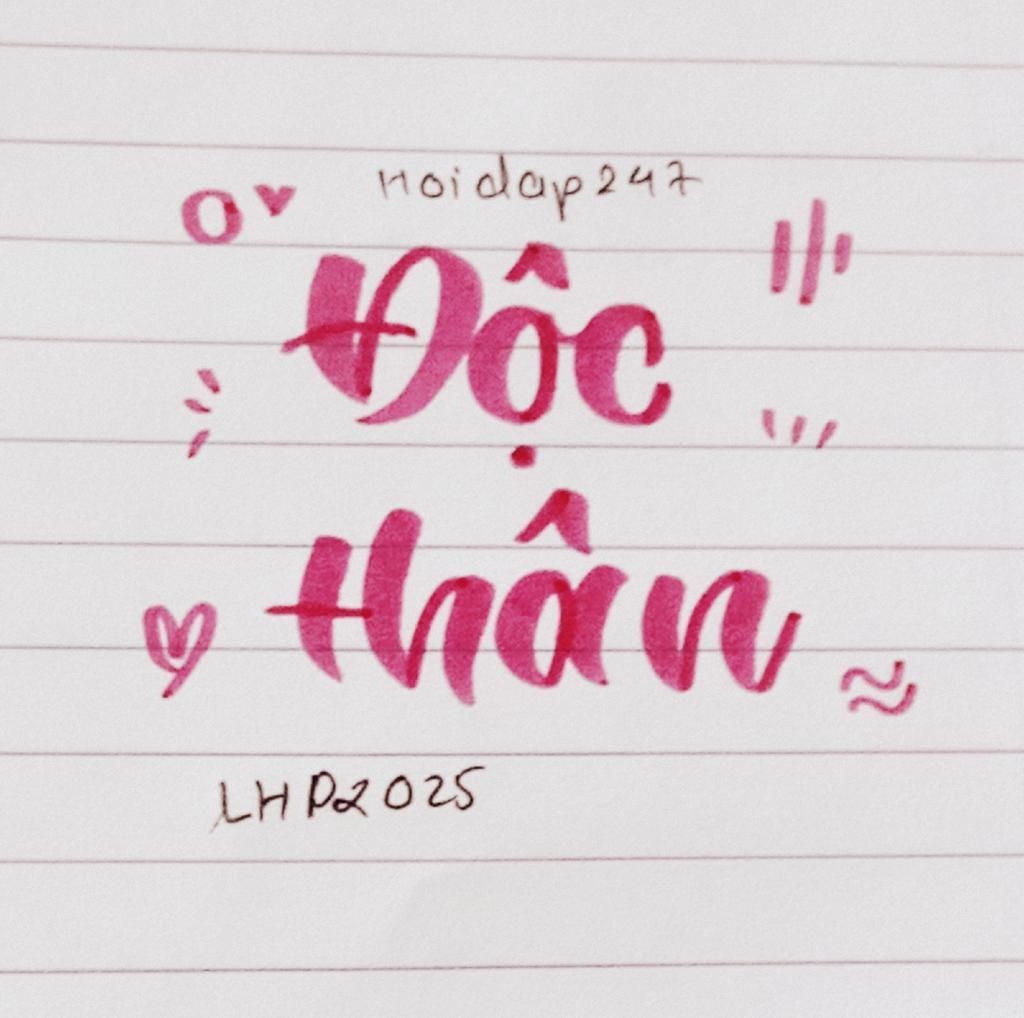 Hoidap247
Độc
thân
LHP2025